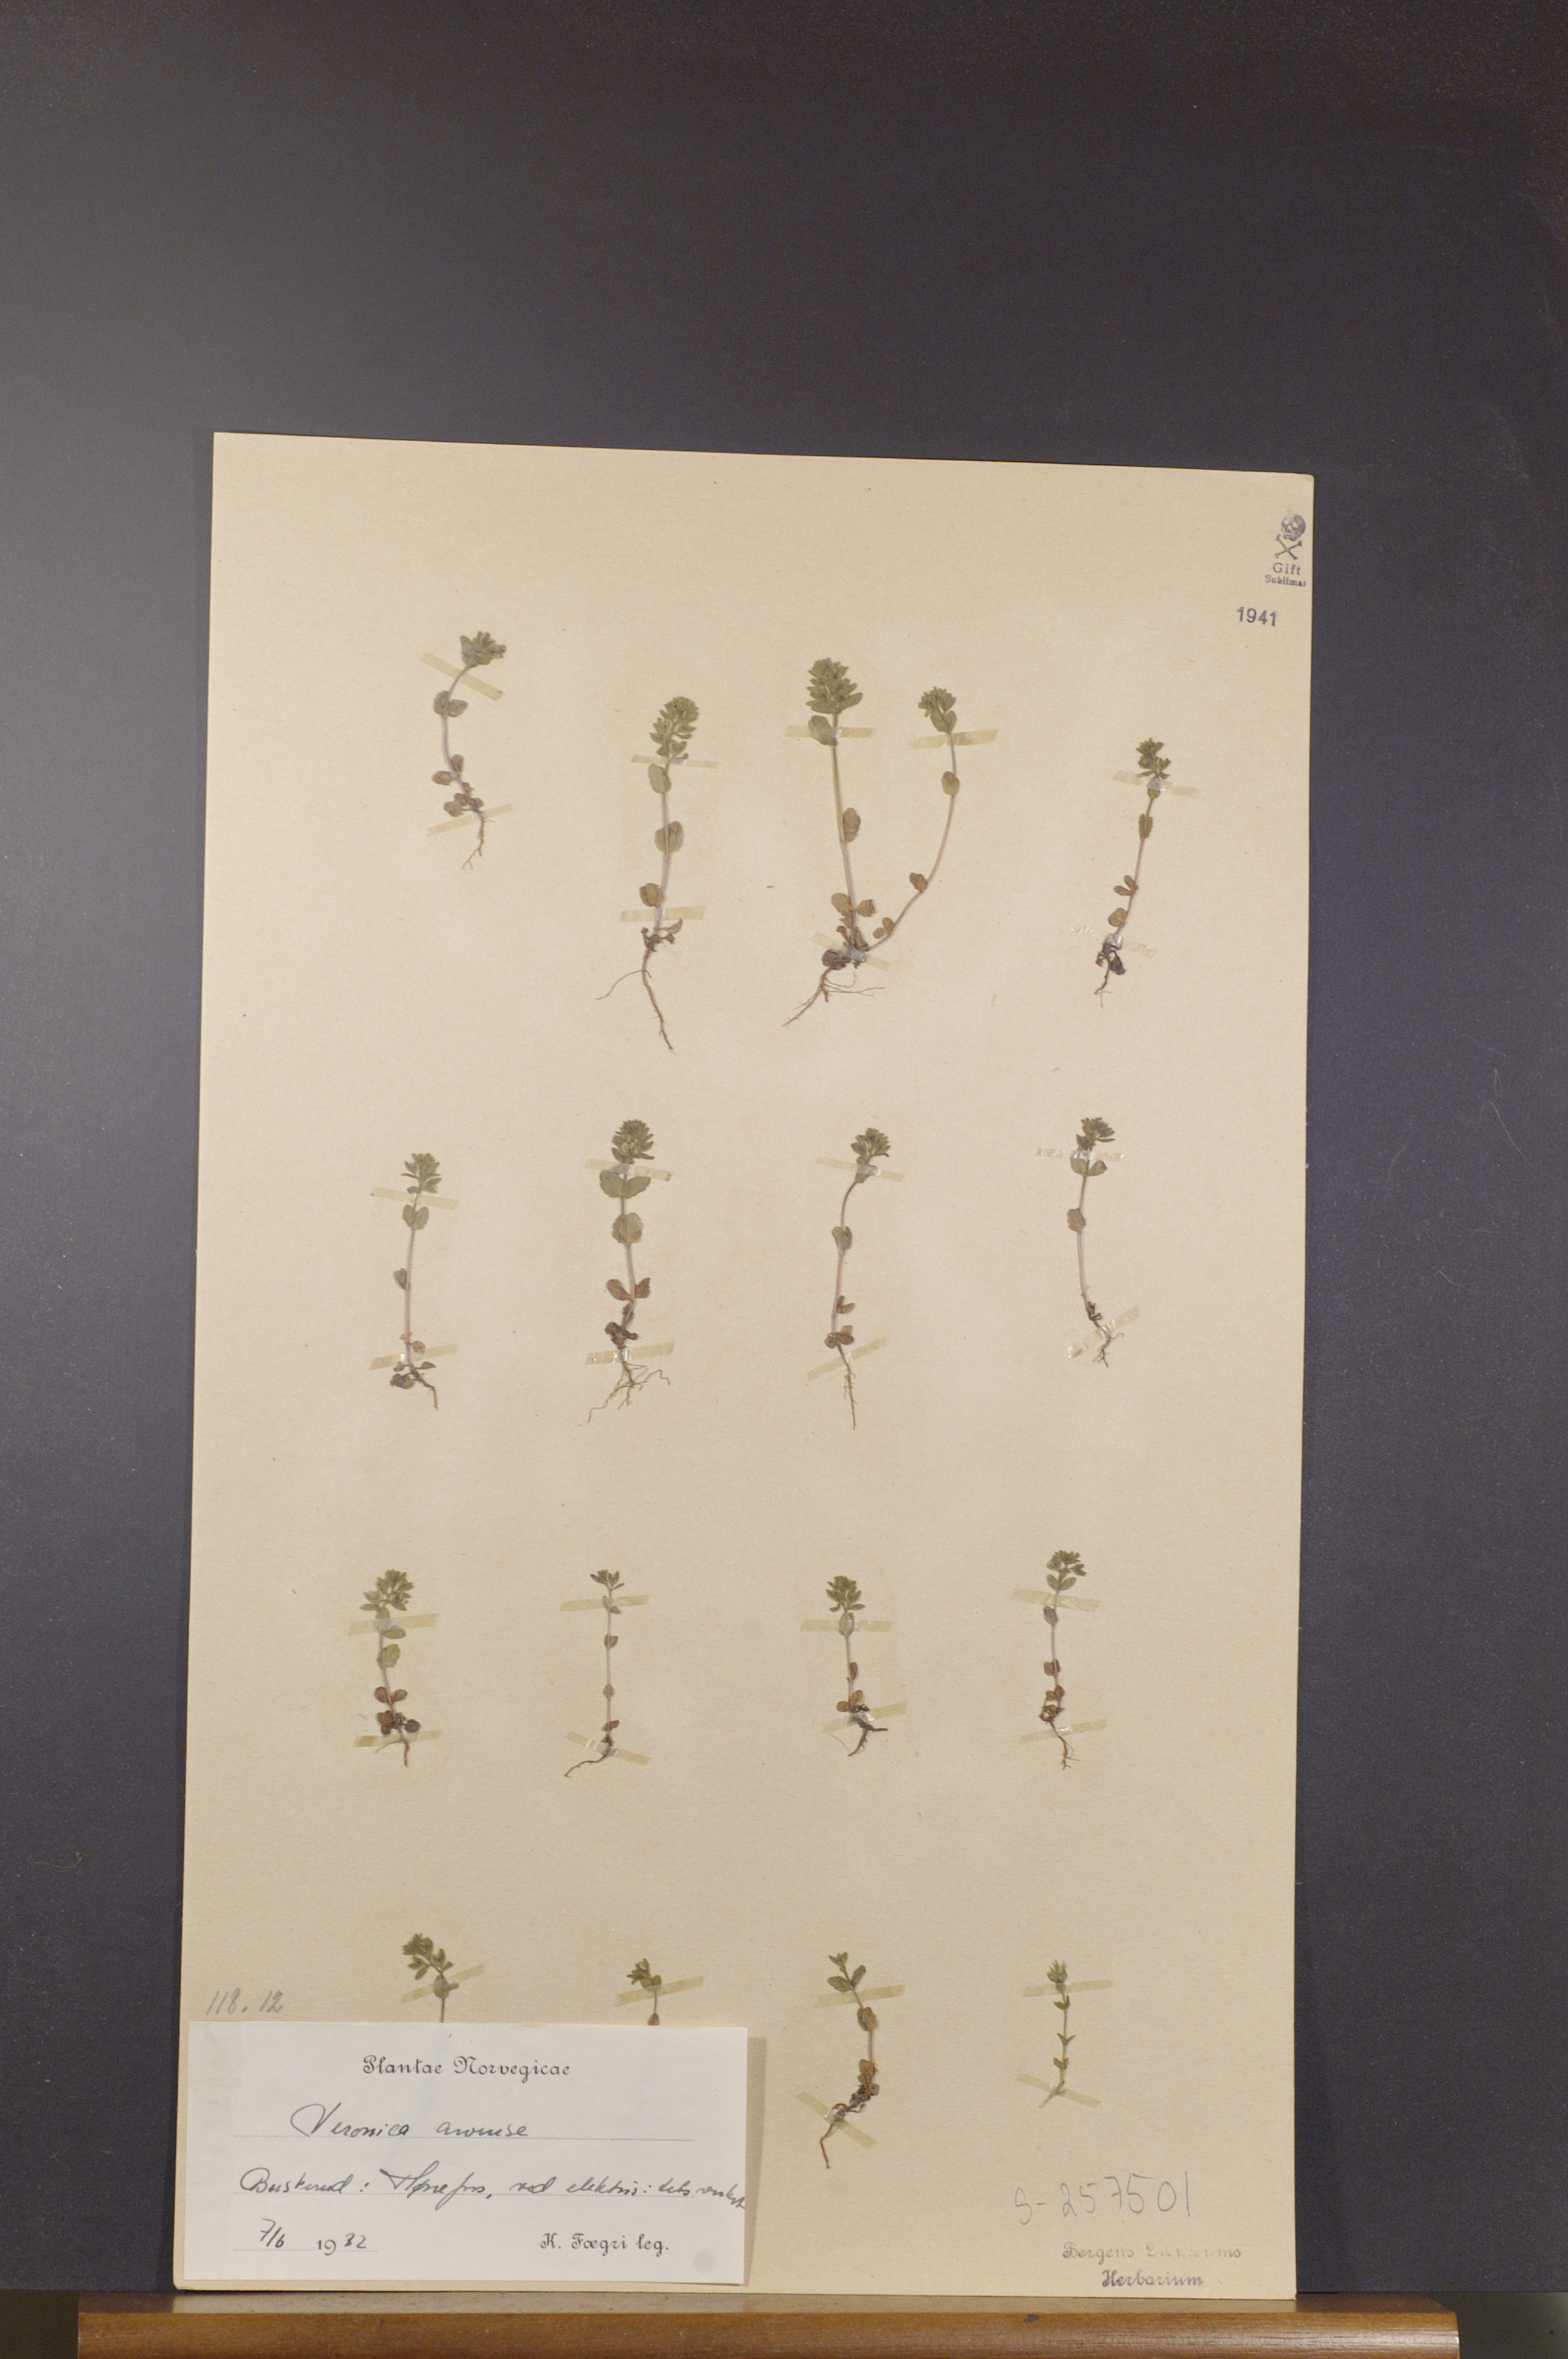 Gift
Sublimat
1941
118.12
Plantae Norvegicae
Veronica arvense
Buskerud: Hønefos, ved elektrisitetsverket
7/6 1932
K. Fægri leg.
S-257501
Bergens Museums
Herbarium